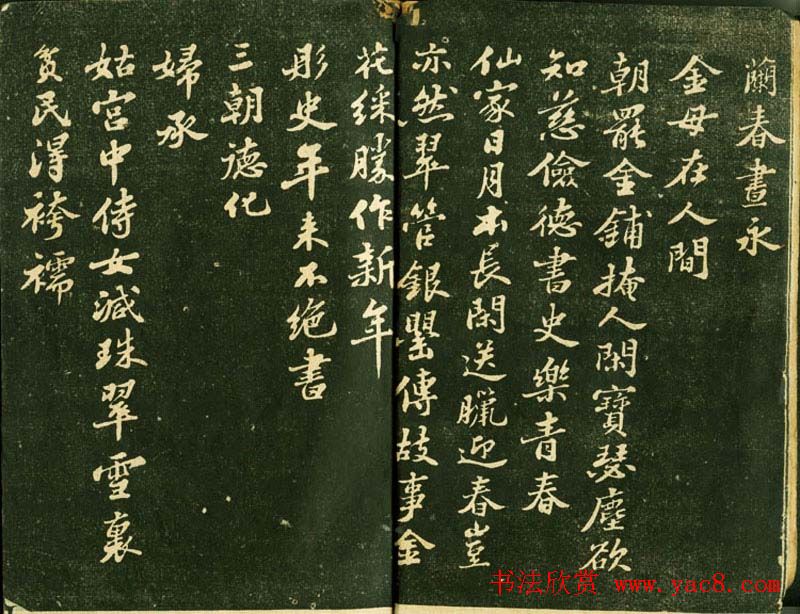 蘭春晝永
金母在人間
朝罷金鋪掩人閑寶瑟塵欲
知慈儉德書史樂青春
仙家日月本長閑送臘迎春豈
亦然翠管銀罌傳故事金
花綵勝作新年
彤史年來不絕書
三朝德化
婦承
姑宮中侍女減珠翠雪裏
貧民得袴襦
书法欣赏 www.yac8.com